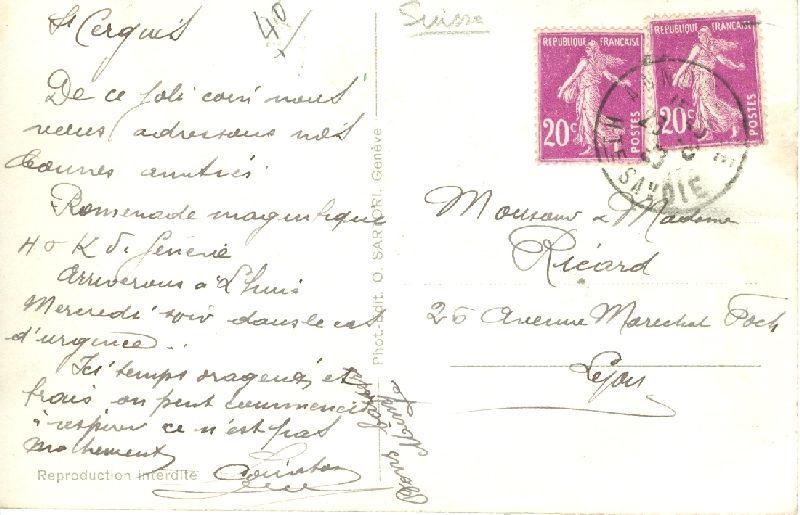 St Cergues
40
Suisse
De ce joli coin nous
vous adressons nos
bonnes amitiés
Promenade magnifique
40 K de Genève
Arriverons à Lhuis
Mercredi soir dans le cas
d'urgence.
Ici temps orageux et
frais on peut commencer
à respirer ce n'est pas
mochement
Reproduction interdite
Phot.-Edit. O. SARTORI, Genève
Bons
REPUBLIQUE FRANÇAISE
20c
POSTES
REPUBLIQUE FRANÇAISE
20c
POSTES
HTE SAVOIE
Monsieur & Madame
Ricard
26 Avenue Marechal Foch
Lyon